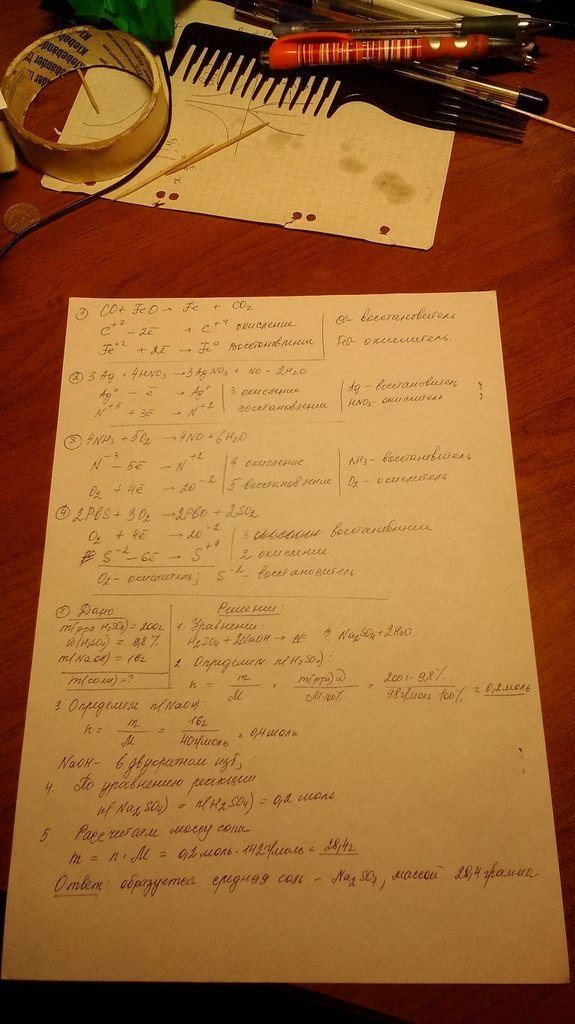 Klebeband
1) CO + FeO → Fe + CO₂
C⁺² - 2ē → C⁺⁴ окисление | CO - восстановитель
Fe⁺² + 2ē → Fe⁰ восстановление | FeO - окислитель.
2) 3Ag + 4HNO₃ → 3AgNO₃ + NO + 2H₂O
Ag⁰ - ē → Ag⁺ | 3 окисление | Ag - восстановитель
N⁺⁵ + 3ē → N⁺² | восстановление | HNO₃ - окислитель
3) 4NH₃ + 5O₂ → 4NO + 6H₂O
N⁻³ - 5ē → N⁺² | 4 окисление | NH₃ - восстановитель
O₂ + 4ē → 2O⁻² | 5 восстановление | O₂ - окислитель
4) 2PbS + 3O₂ → 2PbO + 2SO₂
O₂ + 4ē → 2O⁻² | 3 восстановление
S⁻² - 6ē → S⁺⁴ | 2 окисление
O₂ - окислитель; S⁻² - восстановитель
5) Дано: Решение:
m(р-ра H₂SO₄) = 200г | 1. Уравнение:
ω(H₂SO₄) = 9,8% | H₂SO₄ + 2NaOH → Na₂SO₄ + 2H₂O
m(NaOH) = 16г | 2. Определяем n(H₂SO₄):
m(соли) = ? | n = m/M = m(р-ра)ω/M·100% = 200г·9,8%/98г/моль·100% = 0,2 моль
3. Определяем n(NaOH):
n = m/M = 16г/40г/моль = 0,4 моль
NaOH - в двукратном изб,
4. По уравнению реакции
n(Na₂SO₄) = n(H₂SO₄) = 0,2 моль
5 Рассчитаем массу соли
m = n · M = 0,2 моль · 142г/моль = 28,4г
Ответ: образуется средняя соль - Na₂SO₄, массой 28,4 грамма